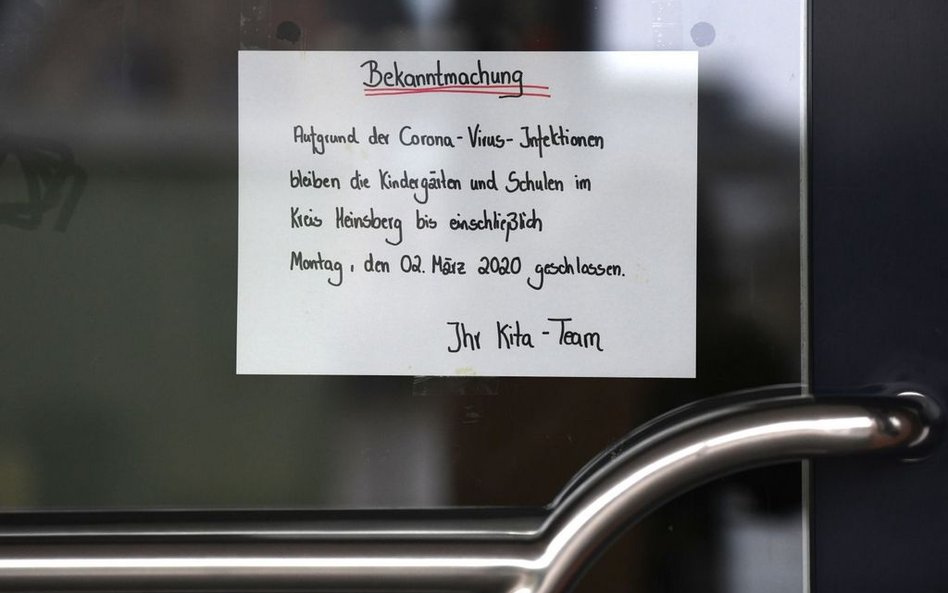 Bekanntmachung
Aufgrund der Corona-Virus-Infektionen
bleiben die Kindergärten und Schulen im
Kreis Heinsberg bis einschließlich
Montag, den 02. März 2020 geschlossen.
Ihr Kita-Team